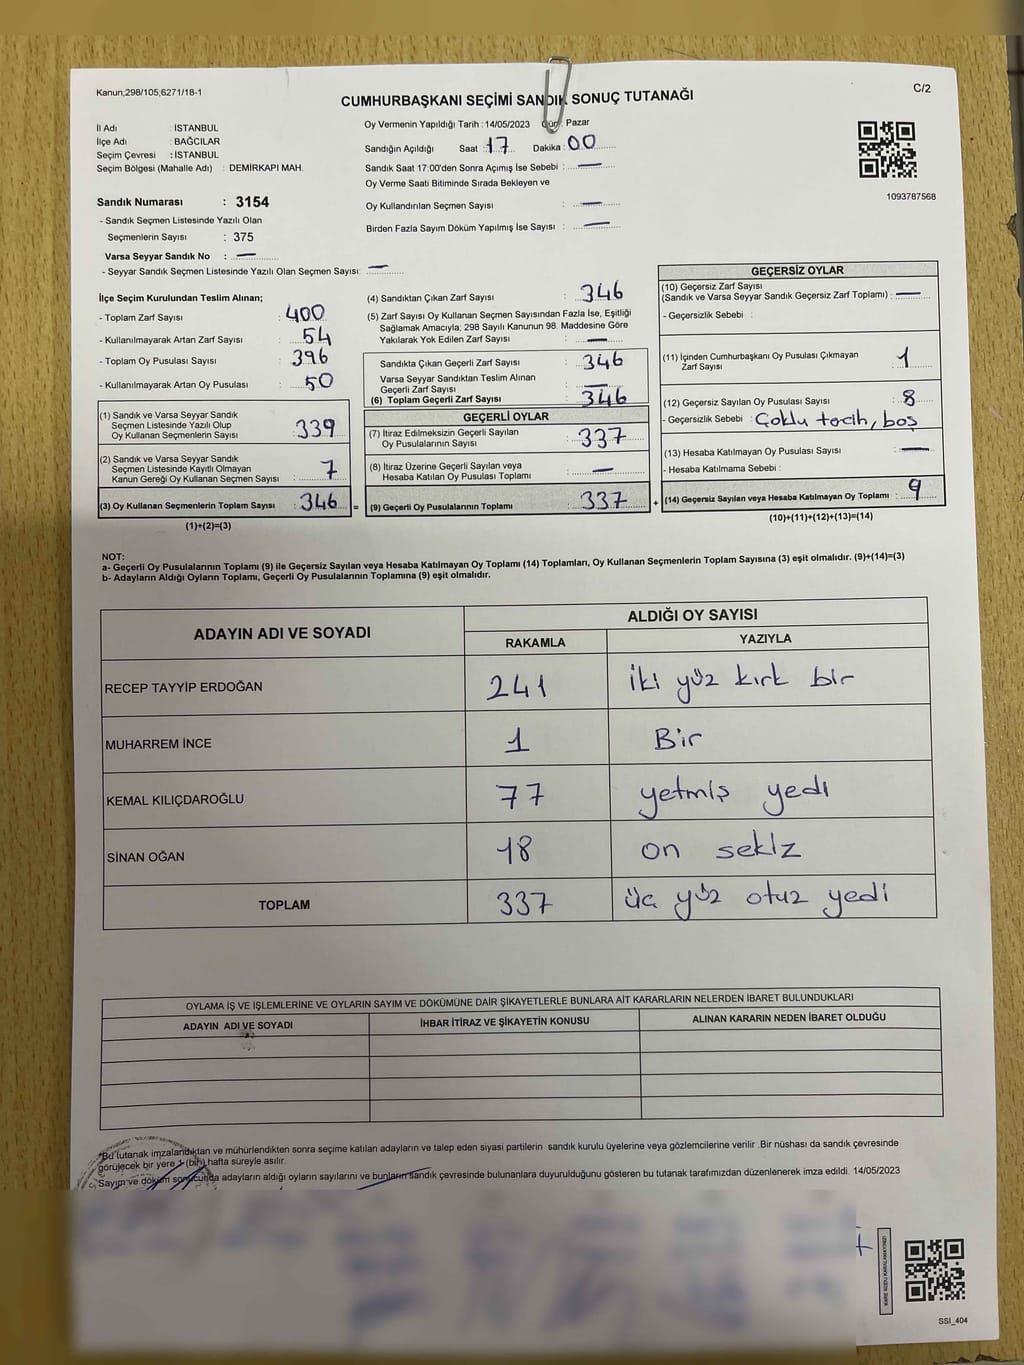 Kanun;298/105;6271/18-1
C/2
CUMHURBAŞKANI SEÇİMİ SANDIK SONUÇ TUTANAĞI
İl Adı : İSTANBUL
İlçe Adı : BAĞCILAR
Seçim Çevresi : İSTANBUL
Seçim Bölgesi (Mahalle Adı) : DEMİRKAPI MAH.
Sandık Numarası : 3154
- Sandık Seçmen Listesinde Yazılı Olan
Seçmenlerin Sayısı : 375
Varsa Seyyar Sandık No : —
- Seyyar Sandık Seçmen Listesinde Yazılı Olan Seçmen Sayısı: —
Oy Vermenin Yapıldığı Tarih : 14/05/2023 Gün : Pazar
Sandığın Açıldığı Saat : 17 Dakika : 00
Sandık Saat 17:00'den Sonra Açımış İse Sebebi : —
Oy Verme Saati Bitiminde Sırada Bekleyen ve
Oy Kullandırılan Seçmen Sayısı : —
Birden Fazla Sayım Döküm Yapılmış İse Sayısı : —
1093787568
İlçe Seçim Kurulundan Teslim Alınan;
- Toplam Zarf Sayısı : 400
- Kullanılmayarak Artan Zarf Sayısı : 54
- Toplam Oy Pusulası Sayısı : 396
- Kullanılmayarak Artan Oy Pusulası : 50
(1) Sandık ve Varsa Seyyar Sandık
Seçmen Listesinde Yazılı Olup
Oy Kullanan Seçmenlerin Sayısı : 339
(2) Sandık ve Varsa Seyyar Sandık
Seçmen Listesinde Kayıtlı Olmayan
Kanun Gereği Oy Kullanan Seçmen Sayısı : 7
(3) Oy Kullanan Seçmenlerin Toplam Sayısı : 346 =
(1)+(2)=(3)
(4) Sandıktan Çıkan Zarf Sayısı : 346
(5) Zarf Sayısı Oy Kullanan Seçmen Sayısından Fazla İse, Eşitliği
Sağlamak Amacıyla; 298 Sayılı Kanunun 98. Maddesine Göre
Yakılarak Yok Edilen Zarf Sayısı : —
Sandıkta Çıkan Geçerli Zarf Sayısı : 346
Varsa Seyyar Sandıktan Teslim Alınan
Geçerli Zarf Sayısı : —
(6) Toplam Geçerli Zarf Sayısı : 346
GEÇERLİ OYLAR
(7) İtiraz Edilmeksizin Geçerli Sayılan
Oy Pusulalarının Sayısı : 337
(8) İtiraz Üzerine Geçerli Sayılan veya
Hesaba Katılan Oy Pusulası Toplamı : —
(9) Geçerli Oy Pusulalarının Toplamı : 337 +
GEÇERSİZ OYLAR
(10) Geçersiz Zarf Sayısı
(Sandık ve Varsa Seyyar Sandık Geçersiz Zarf Toplamı) : —
- Geçersizlik Sebebi :
(11) İçinden Cumhurbaşkanı Oy Pusulası Çıkmayan
Zarf Sayısı : 1
(12) Geçersiz Sayılan Oy Pusulası Sayısı : 8
- Geçersizlik Sebebi : Çoklu tercih, boş
(13) Hesaba Katılmayan Oy Pusulası Sayısı : —
- Hesaba Katılmama Sebebi :
(14) Geçersiz Sayılan veya Hesaba Katılmayan Oy Toplamı : 9
(10)+(11)+(12)+(13)=(14)
NOT:
a- Geçerli Oy Pusulalarının Toplamı (9) ile Geçersiz Sayılan veya Hesaba Katılmayan Oy Toplamı (14) Toplamları, Oy Kullanan Seçmenlerin Toplam Sayısına (3) eşit olmalıdır. (9)+(14)=(3)
b- Adayların Aldığı Oyların Toplamı, Geçerli Oy Pusulalarının Toplamına (9) eşit olmalıdır.
ADAYIN ADI VE SOYADI
ALDIĞI OY SAYISI
RAKAMLA YAZIYLA
RECEP TAYYİP ERDOĞAN 241 iki yüz kırk bir
MUHARREM İNCE 1 Bir
KEMAL KILIÇDAROĞLU 77 yetmiş yedi
SİNAN OĞAN 18 on sekiz
TOPLAM 337 üç yüz otuz yedi
OYLAMA İŞ VE İŞLEMLERİNE VE OYLARIN SAYIM VE DÖKÜMÜNE DAİR ŞİKAYETLERLE BUNLARA AİT KARARLARIN NELERDEN İBARET BULUNDUKLARI
ADAYIN ADI VE SOYADI İHBAR İTİRAZ VE ŞİKAYETİN KONUSU ALINAN KARARIN NEDEN İBARET OLDUĞU
*Bu tutanak imzalandıktan ve mühürlendikten sonra seçime katılan adayların ve talep eden siyasi partilerin sandık kurulu üyelerine veya gözlemcilerine verilir .Bir nüshası da sandık çevresinde
görülecek bir yere 1 (bir) hafta süreyle asılır.
Sayım ve döküm sonucunda adayların aldığı oyların sayılarını ve bunların sandık çevresinde bulunanlara duyurulduğunu gösteren bu tutanak tarafımızdan düzenlenerek imza edildi. 14/05/2023
KARE KODU KARALAMAYINIZ!
SSI_404